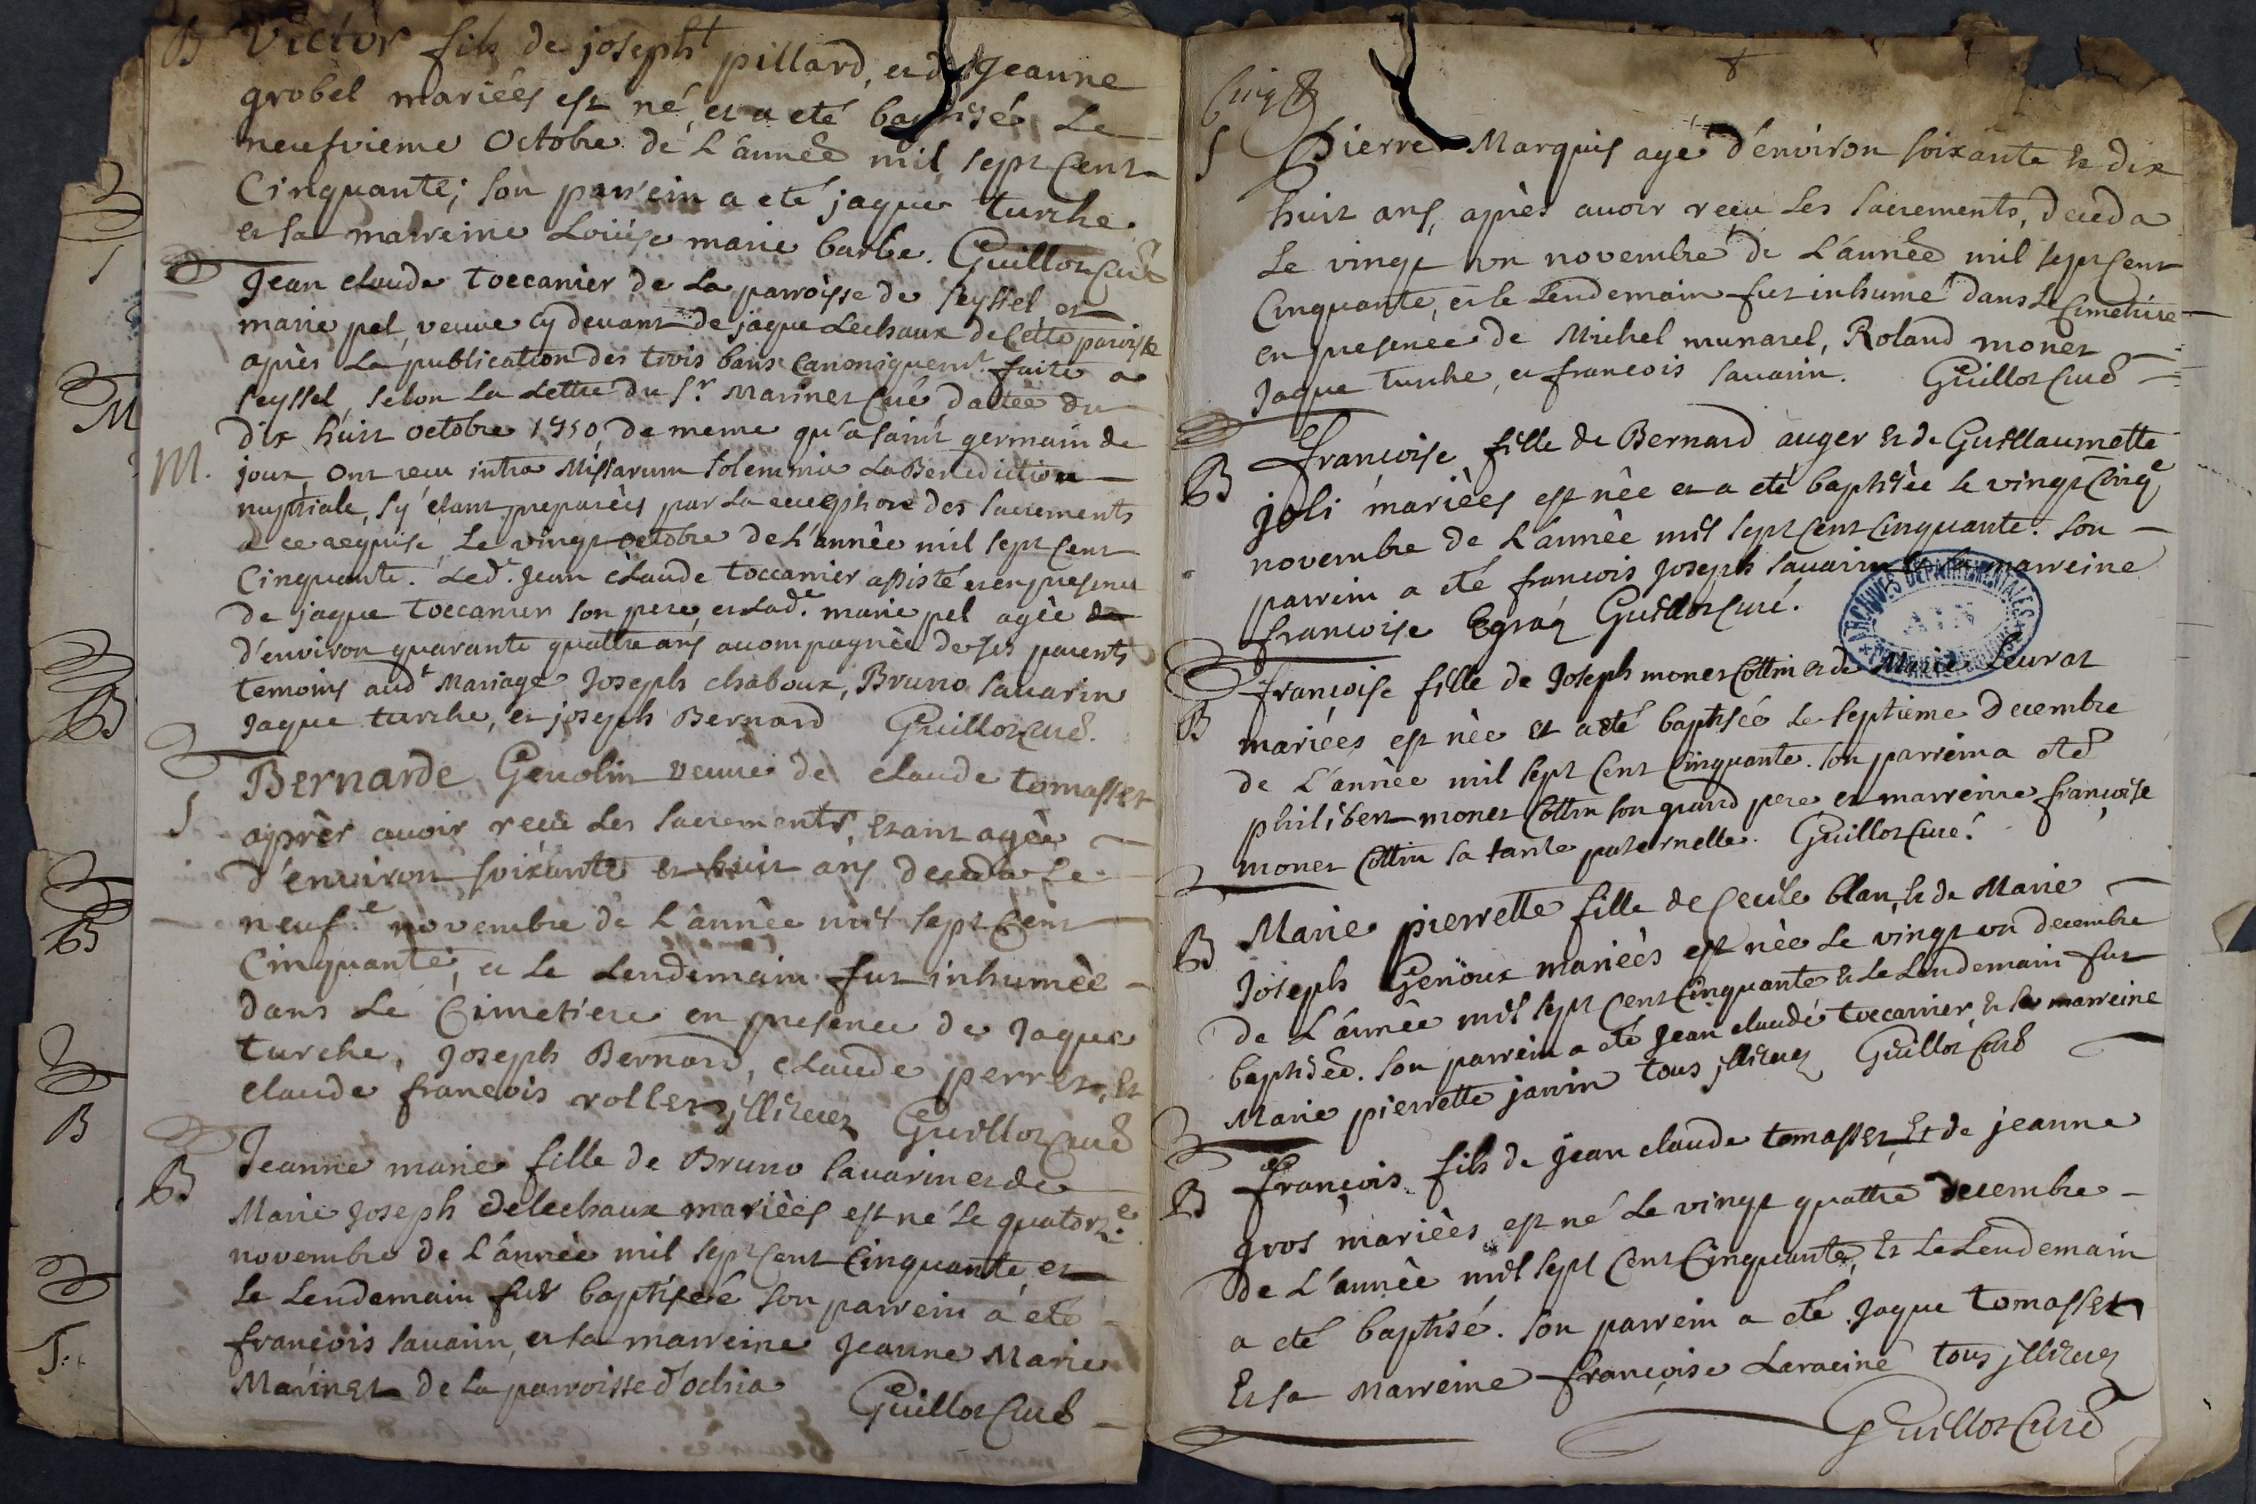 B Victor fils de joseph pillard, et de Jeanne
grobel mariées est né, et a eté baptisé Le
neufvieme Octobre de L'année mil sept Cent
Cinquante; son parrein a eté jaque turche
et sa marreine Loüise marie barbe. Guillot Curé
Jean claude toccanier de La parroisse de seyssel et
marie pel, veuve cy devant de jaque Lechaux de Cette paroisse
après La publication des trois bans Canoniquemt. faite a
seyssel, selon La Lettre du Sr. Marinet Curé dattée du
dix huit octobre 1750, de meme qu'a saint germain de
M. joux, ont recu intra Missarum solemnia La Benediction
nuptiale, s'y étant preparées par La reception des sacrements
a ce requise, Le vingt octobre de L'année mil sept Cent
Cinquante. Ledt. Jean claude toccanier assisté et en presence
de jaque toccanier son pere, et Lade. marie pel agée de
d'environ quarante quattre ans acompagnée de ses parents
temoins audt Mariage Joseph chaboux, Bruno savarin
Jaque turche, et joseph Bernard Guillot Curé.
Bernarde Genolin veuve de claude tomasset
S après avoir receu Les sacrements, etant agée
d'environ soixante et huit ans deceda Le
neufe. novembre de L'année mil sept Cent
Cinquante, et Le Lendemain fut inhumée
dans Le Cimetiere en presence de Jaque
turche, Joseph Bernard, claude perret, Et
claude francois rollet, jllitérez Guillot Curé
B Jeanne marie fille de Bruno savarin et de
Marie Joseph delechaux mariées est né Le quatorze.
novembre de L'année mil sept Cent Cinquante et
Le Lendemain fut baptisée son parrein a eté
françois savarin, et sa marreine Jeanne Marie
Marinet de La parroisse d'ochia Guillot Curé
S Pierre Marquis agé d'environ soixante Et dix
huit ans, après avoir reçu Les sacrements, deceda
Le vingt un novembre de L'année mil sept Cent
Cinquante, et le Lendemain fut inhumé dans Le Cimetiere
en presence de Michel munarel, Roland monet
Jaque turche, et francois savarin. Guillot Curé
B francoise fille de Bernard auger Et de Guillaumette
joli mariées est née et a eté baptisée Le vingt Cinqe
novembre de L'année mil sept Cent Cinquante. son
parrein a eté francois Joseph savarin Et sa marreine
francoise Egraz Guillot Curé.
ARCHIVES DEPARTEMENTALES
AIN
françoise fille de Joseph monet Cottin et de Marie Leurat
B mariées est née Et a eté baptisée Le septieme decembre
de L'année mil sept Cent Cinquante. son parrein a eté
philibert monet Cottin son grand pere et marreine françoise
monet Cottin sa tante paternelle. Guillot Curé.
B Marie pierrette fille de Cecile blanc Et de Marie
Joseph Genoux mariées est née Le vingt un decembre
de L'année mil sept Cent Cinquante Et Le Lendemain fut
baptisée. son parrein a eté Jean claude toccanier, Et sa marreine
Marie pierrette janin tous jllitérez Guillot Curé
B François fils de jean claude tomasset, Et de jeanne
gros mariées est né Le vingt quattre decembre
de L'année mil sept Cent Cinquante, Et Le Lendemain
a eté baptisé. son parrein a eté Jaque tomasset
Et sa Marreine françoise Laracine tous jllitérez
Guillot Curé